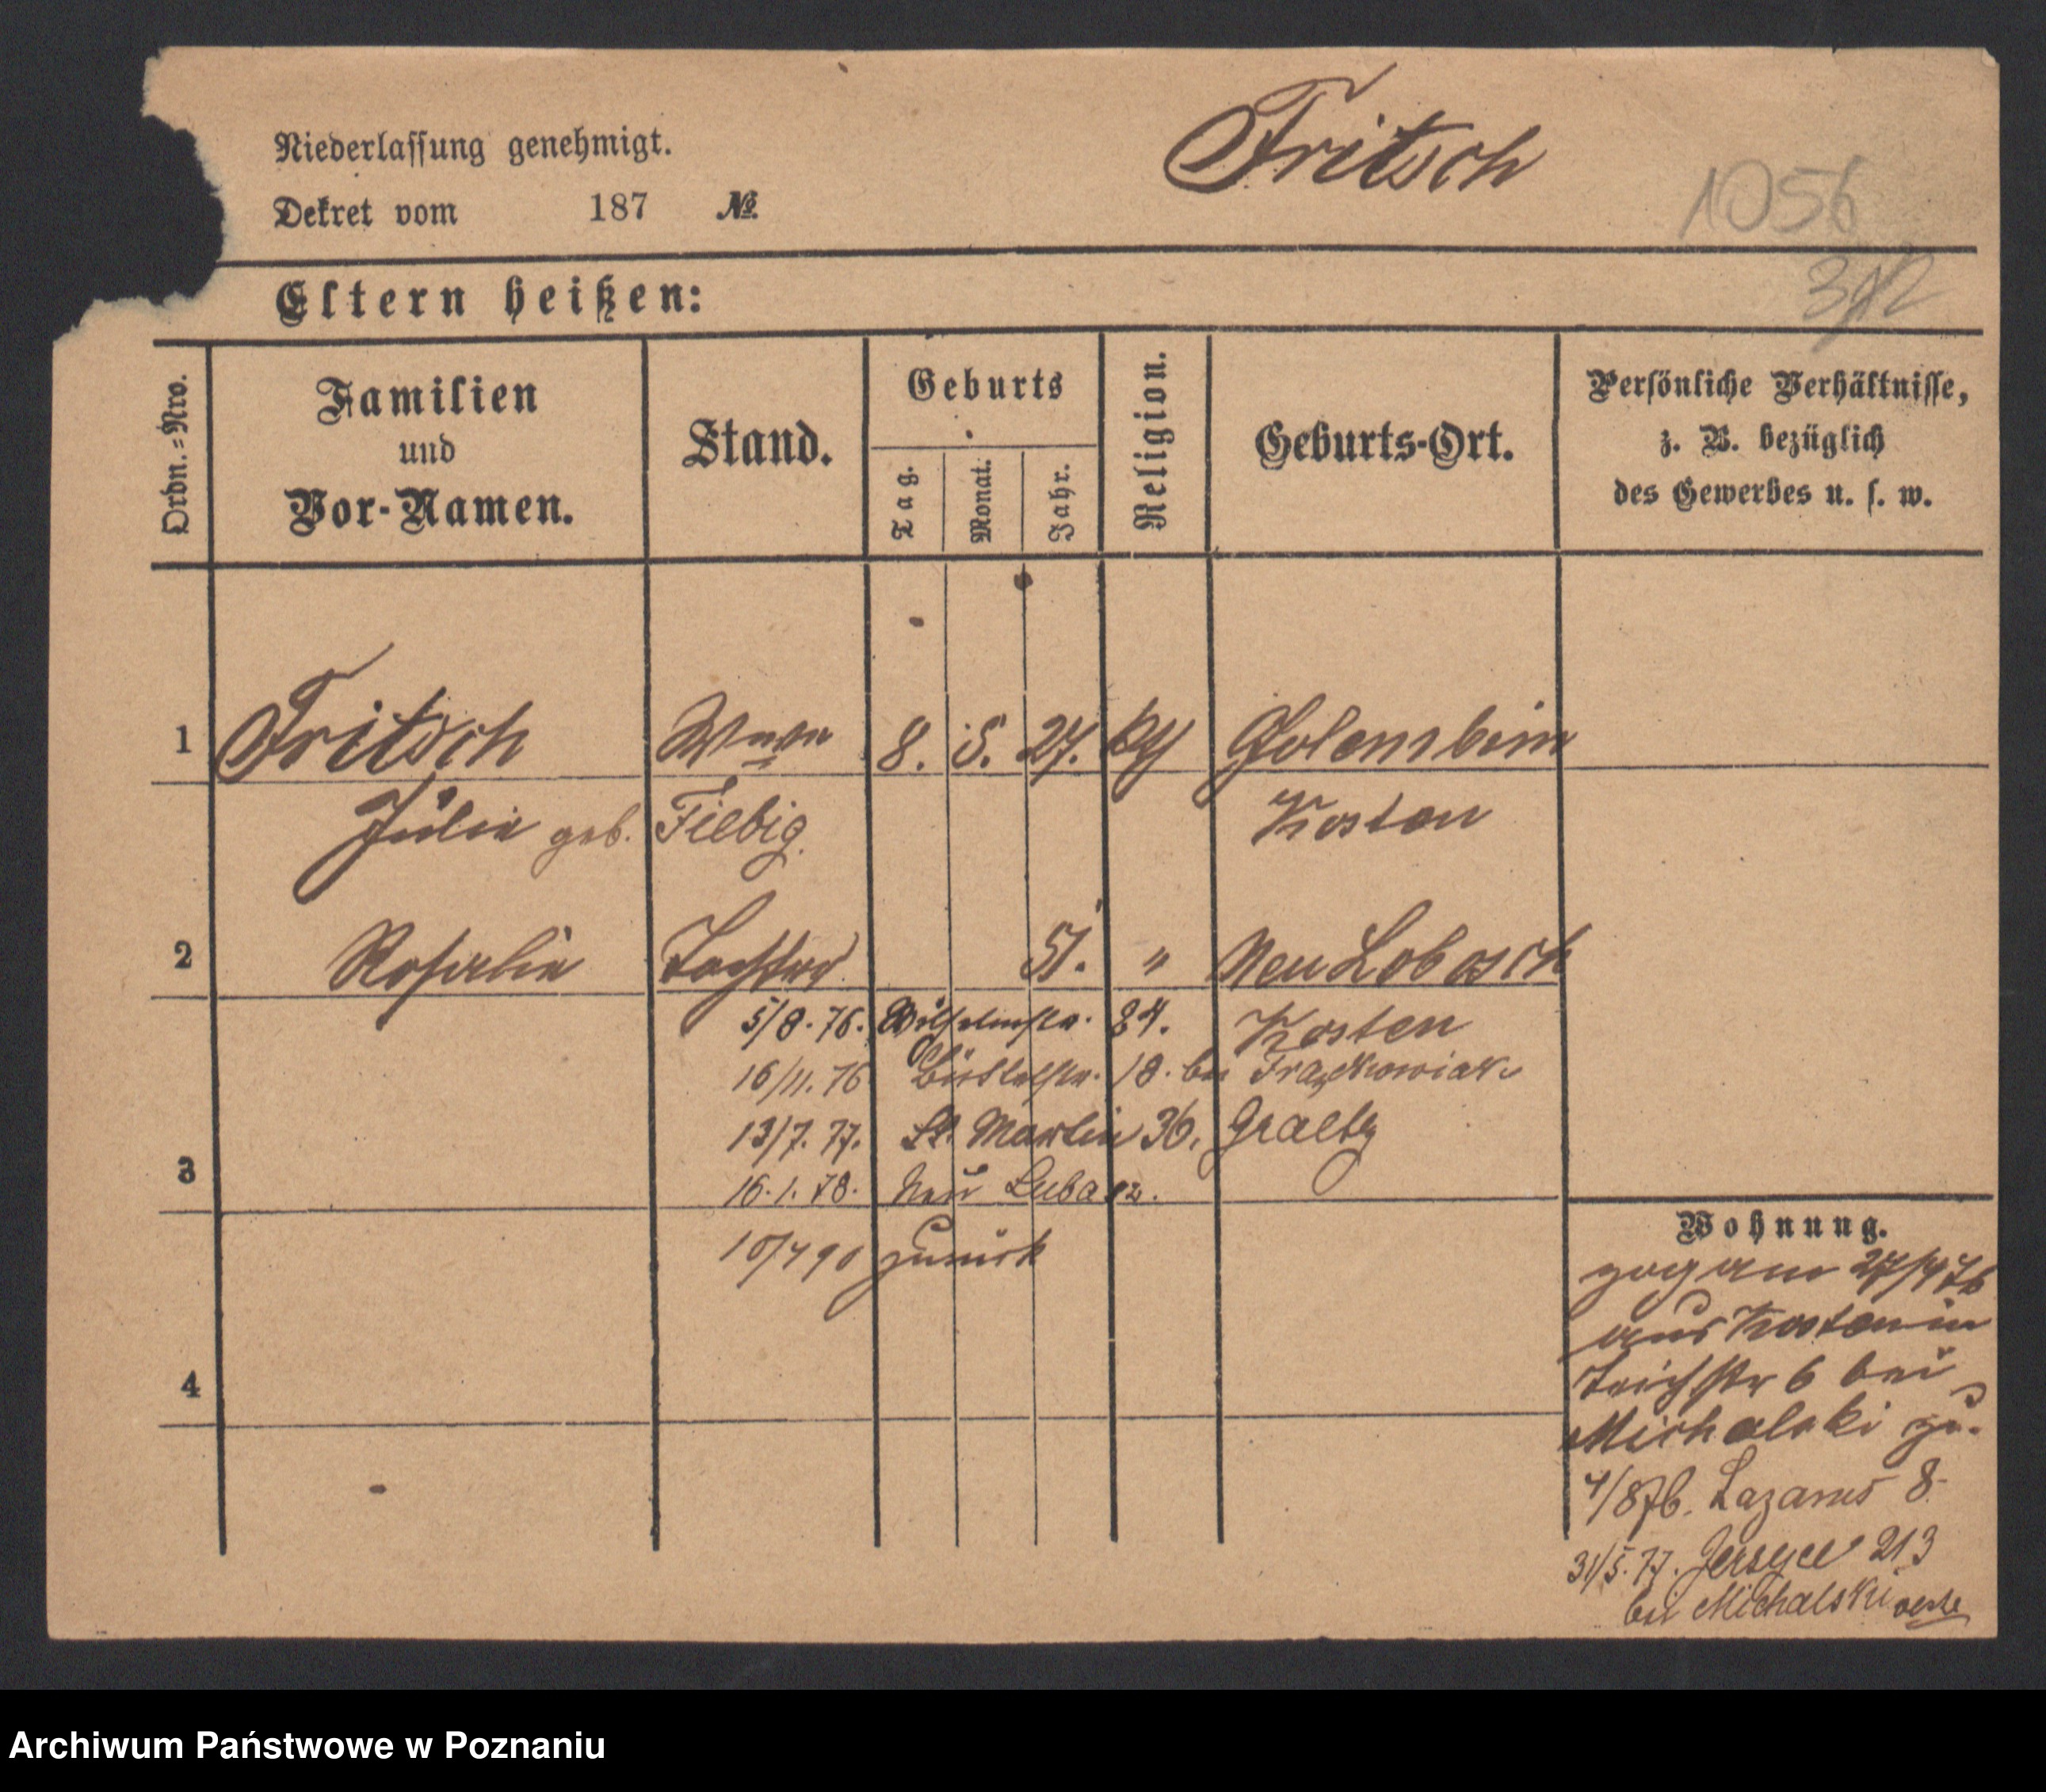 Niederlassung genehmigt.
Fritsch
1056
Dekret vom 187 №
Eltern heißen:
312
Ordn.=Nro.
Familien
und
Vor-Namen.
Stand.
Geburts
Tag.
Monat.
Jahr.
Religion.
Geburts-Ort.
Persönliche Verhältnisse,
z. B. bezüglich
des Gewerbes u. s. w.
1 Fritsch Wwe 8. 5. 27. Golembin
Julie geb. Fiebig. Kosten
2 Rosalie Tochter 51. " Neu Lobosch
5/8. 76. Wilhelmstr. 24. Kosten
16/11. 76 Büttelstr. 18. bei Frąckowiak
13/7. 77. St. Martin 36, Graetz
3
16. 1. 78. Neu Lubosz.
10/4 90 zurück
4
Wohnung.
zog am 27/4 76
aus Kosten in
Teichstr 6 bei
Michalski zu.
4/8 76. Lazarus 8.
31/5. 77. Jersyce 213
bei Michalski
Archiwum Państwowe w Poznaniu